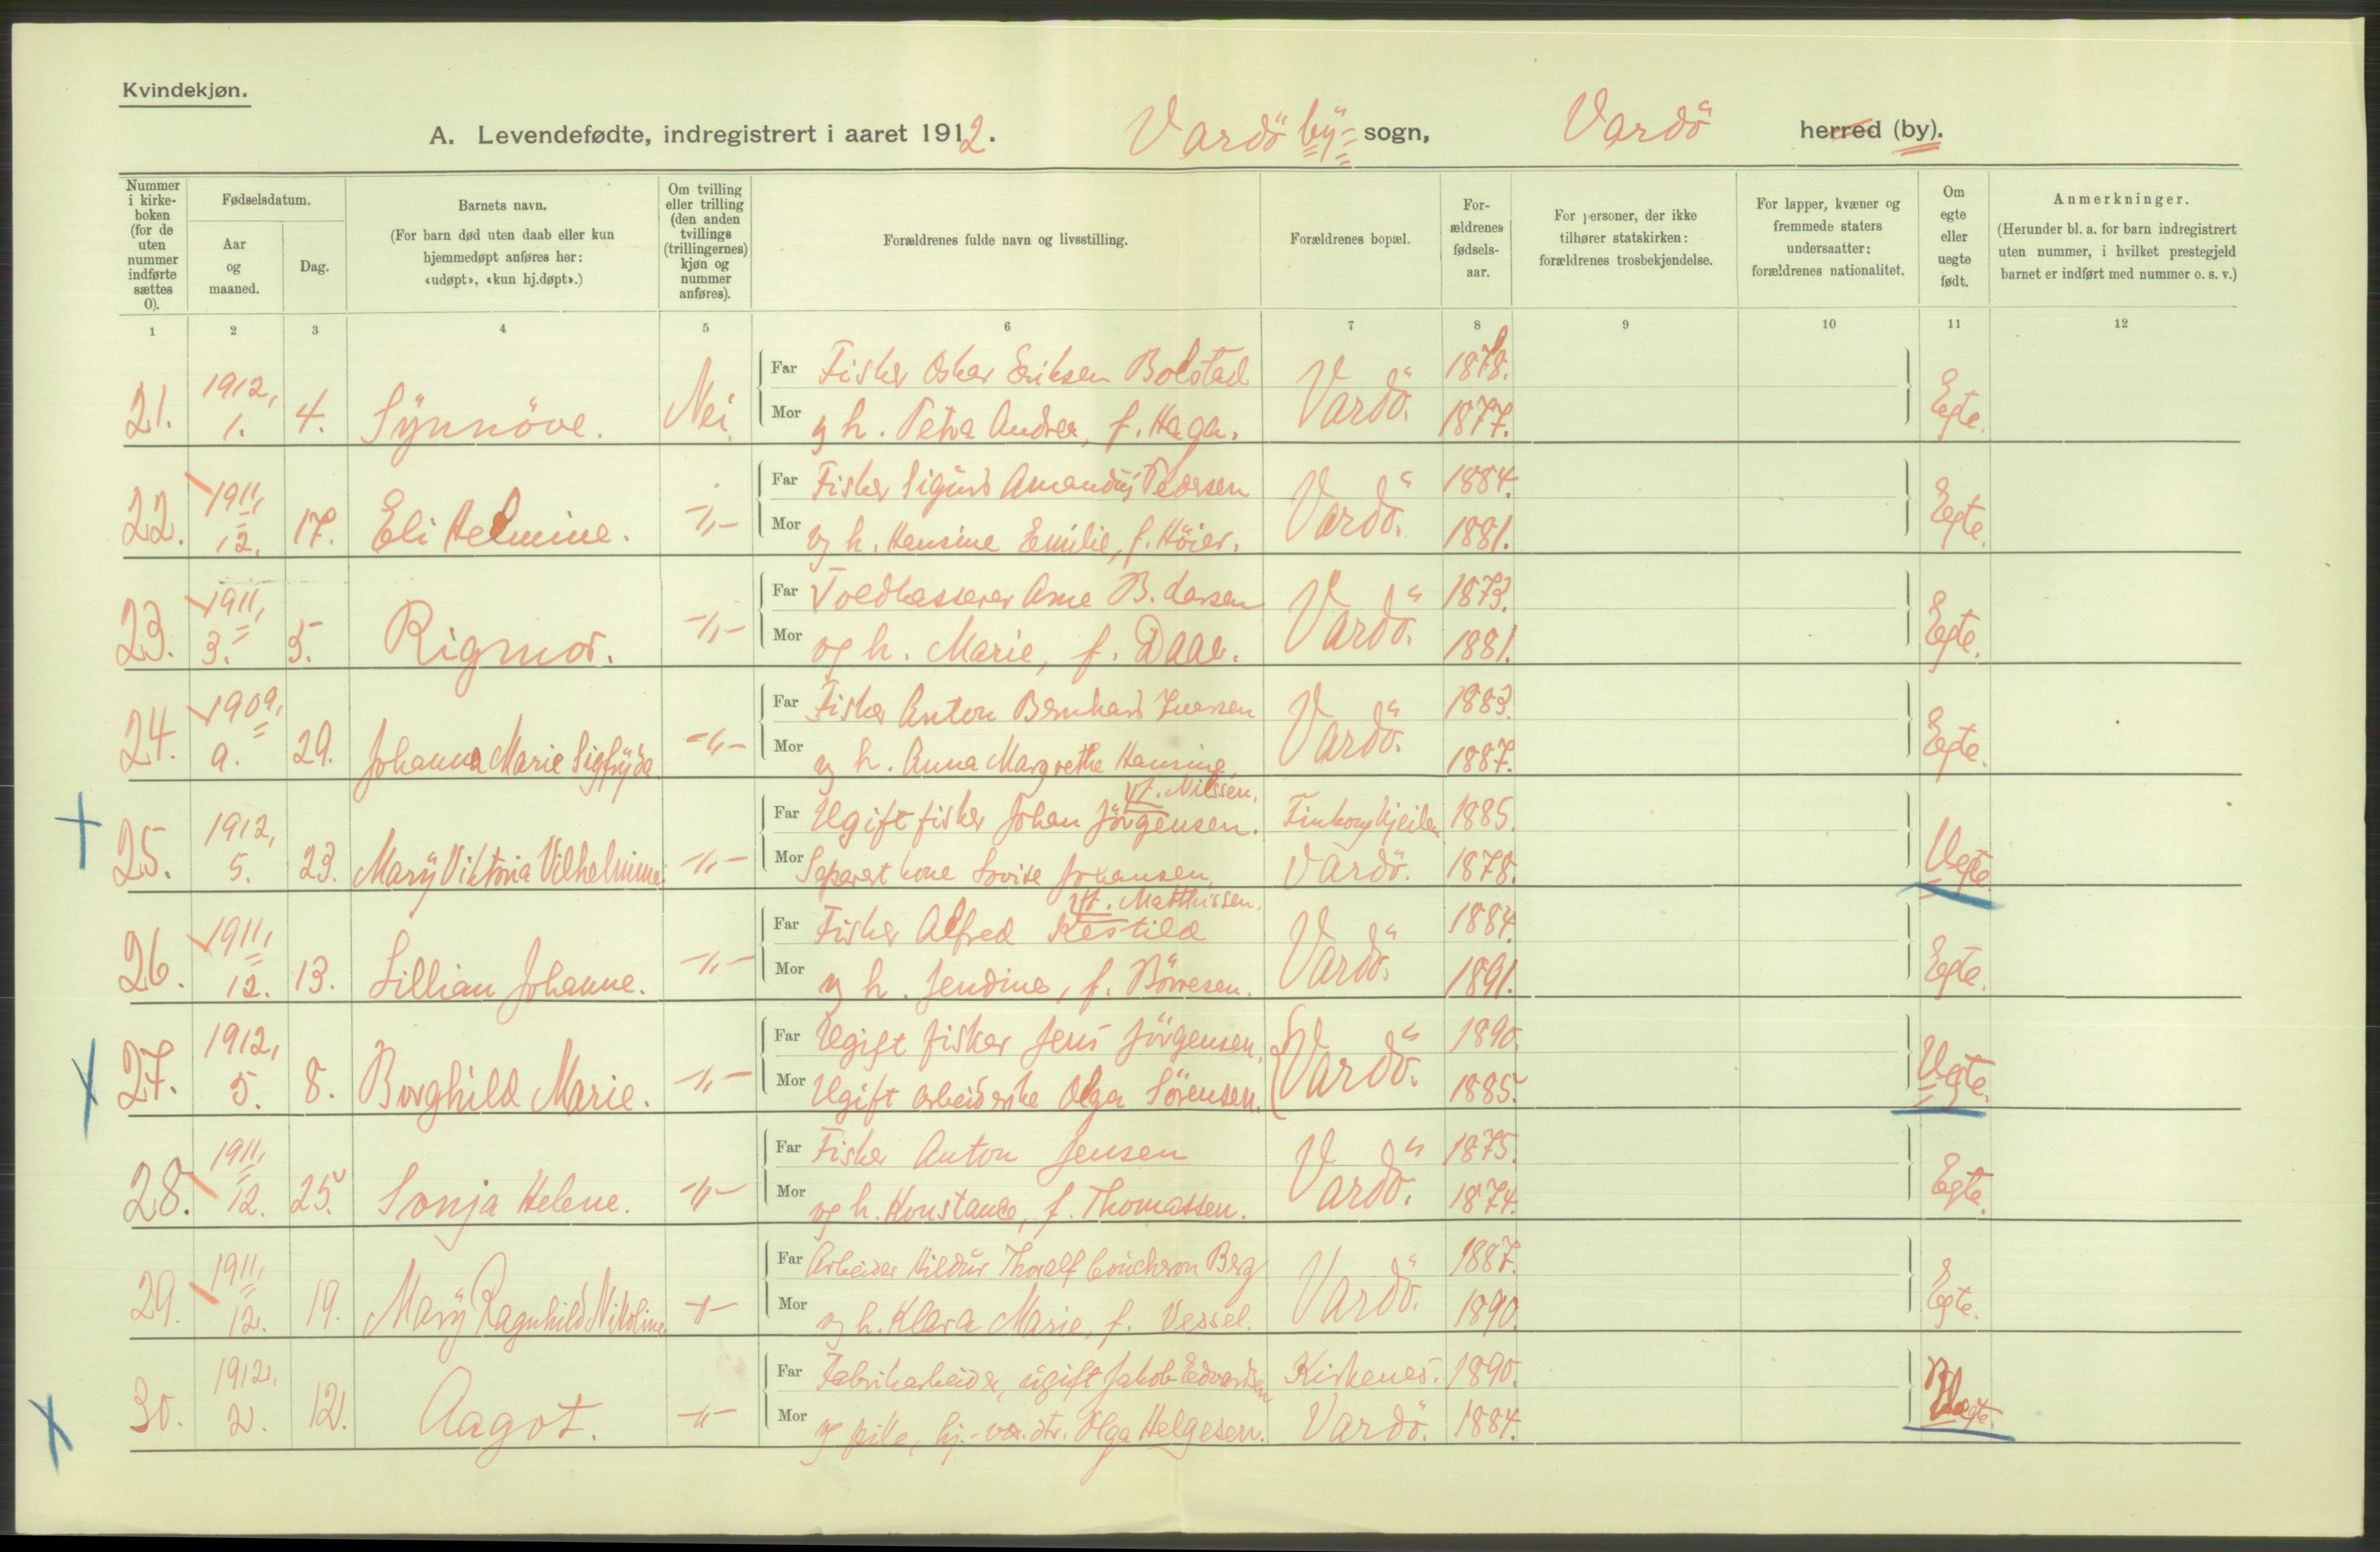 Kvindekjøn.
A. Levendefødte, indregistrert i aaret 1912. Vardö by- sogn, Vardö herred (by).
Nummer i kirkeboken (for de uten nummer indførte sættes 0).
Fødselsdatum.
Aar og maaned.
Dag.
Barnets navn.
(For barn død uten daab eller kun hjemmedøpt anføres her: «udøpt», «kun hj.døpt».)
Om tvilling eller trilling (den anden tvillings (trillingernes) kjøn og nummer anføres).
Forældrenes fulde navn og livsstilling.
Forældrenes bopæl.
Forældrenes fødselsaar.
For personer, der ikke tilhører statskirken: forældrenes trosbekjendelse.
For lapper, kvæner og fremmede staters undersaatter: forældrenes nationalitet.
Om egte eller uegte født.
Anmerkninger.
(Herunder bl. a. for barn indregistrert uten nummer, i hvilket prestegjeld barnet er indført med nummer o. s. v.)
1 2 3 4 5 6 7 8 9 10 11 12
21. 1912, 1. 4. Synnöve. Nei. Far Fisker Oskar Eriksen Bolstad Vardö. 1878. Egte.
Mor og h. Petra Andrea, f. Haga. 1877.
22. 1911, 12. 17. Eli Helmine. -"- Far Fisker Sigurd Amandus Pedersen Vardö. 1884. Egte.
Mor og h. Hansine Emilie, f. Höier. 1881.
23. 1911, 3. 5. Rigmor. -"- Far Toldkasserer Arne B. Larsen Vardö. 1873. Egte.
Mor og h. Marie, f. Daae. 1881.
24. 1909, 9. 29. Johanna Marie Sigfryda -"- Far Fisker Anton Bernhard Iversen Vardö. 1883. Egte.
Mor og h. Anna Margrethe Hansine, 1887.
f. Nilssen.
25. 1912, 5. 23. Mary Viktoria Vilhelmine. -"- Far Ugift fisker Johan Jörgensen. Finkongkjeilen 1885. Uegte.
Mor Separert kone Lovise Johansen, Vardö. 1878.
f. Mathissen.
26. 1911, 12. 13. Lillian Johanne. -"- Far Fisker Alfred Kestild Vardö. 1884. Egte.
Mor og h. Jendine, f. Börresen. 1891.
27. 1912, 5. 8. Borghild Marie. -"- Far Ugift fisker Jens Jörgensen, Vardö. 1890. Uegte.
Mor Ugift arbeiderske Olga Sörensen. 1885.
28. 1911, 12. 25. Sonja Helene. -"- Far Fisker Anton Jensen Vardö. 1875. Egte.
Mor og h. Konstance, f. Thomassen. 1874.
29. 1911, 12. 19. Mary Ragnhild Nikoline. -"- Far Arbeider Hildur Thoralf Coucheron Berg Vardö. 1887. Egte.
Mor og h. Klara Marie, f. Vessel. 1890.
30. 1912. 2. 12. Aagot. -"- Far Fabrikarbeider, ugift Jakob Edvardsen Kirkenes. 1890. Uegte.
Mor og pike, hj.-vær. dtr. Olga Helgesen. Vardö. 1884.